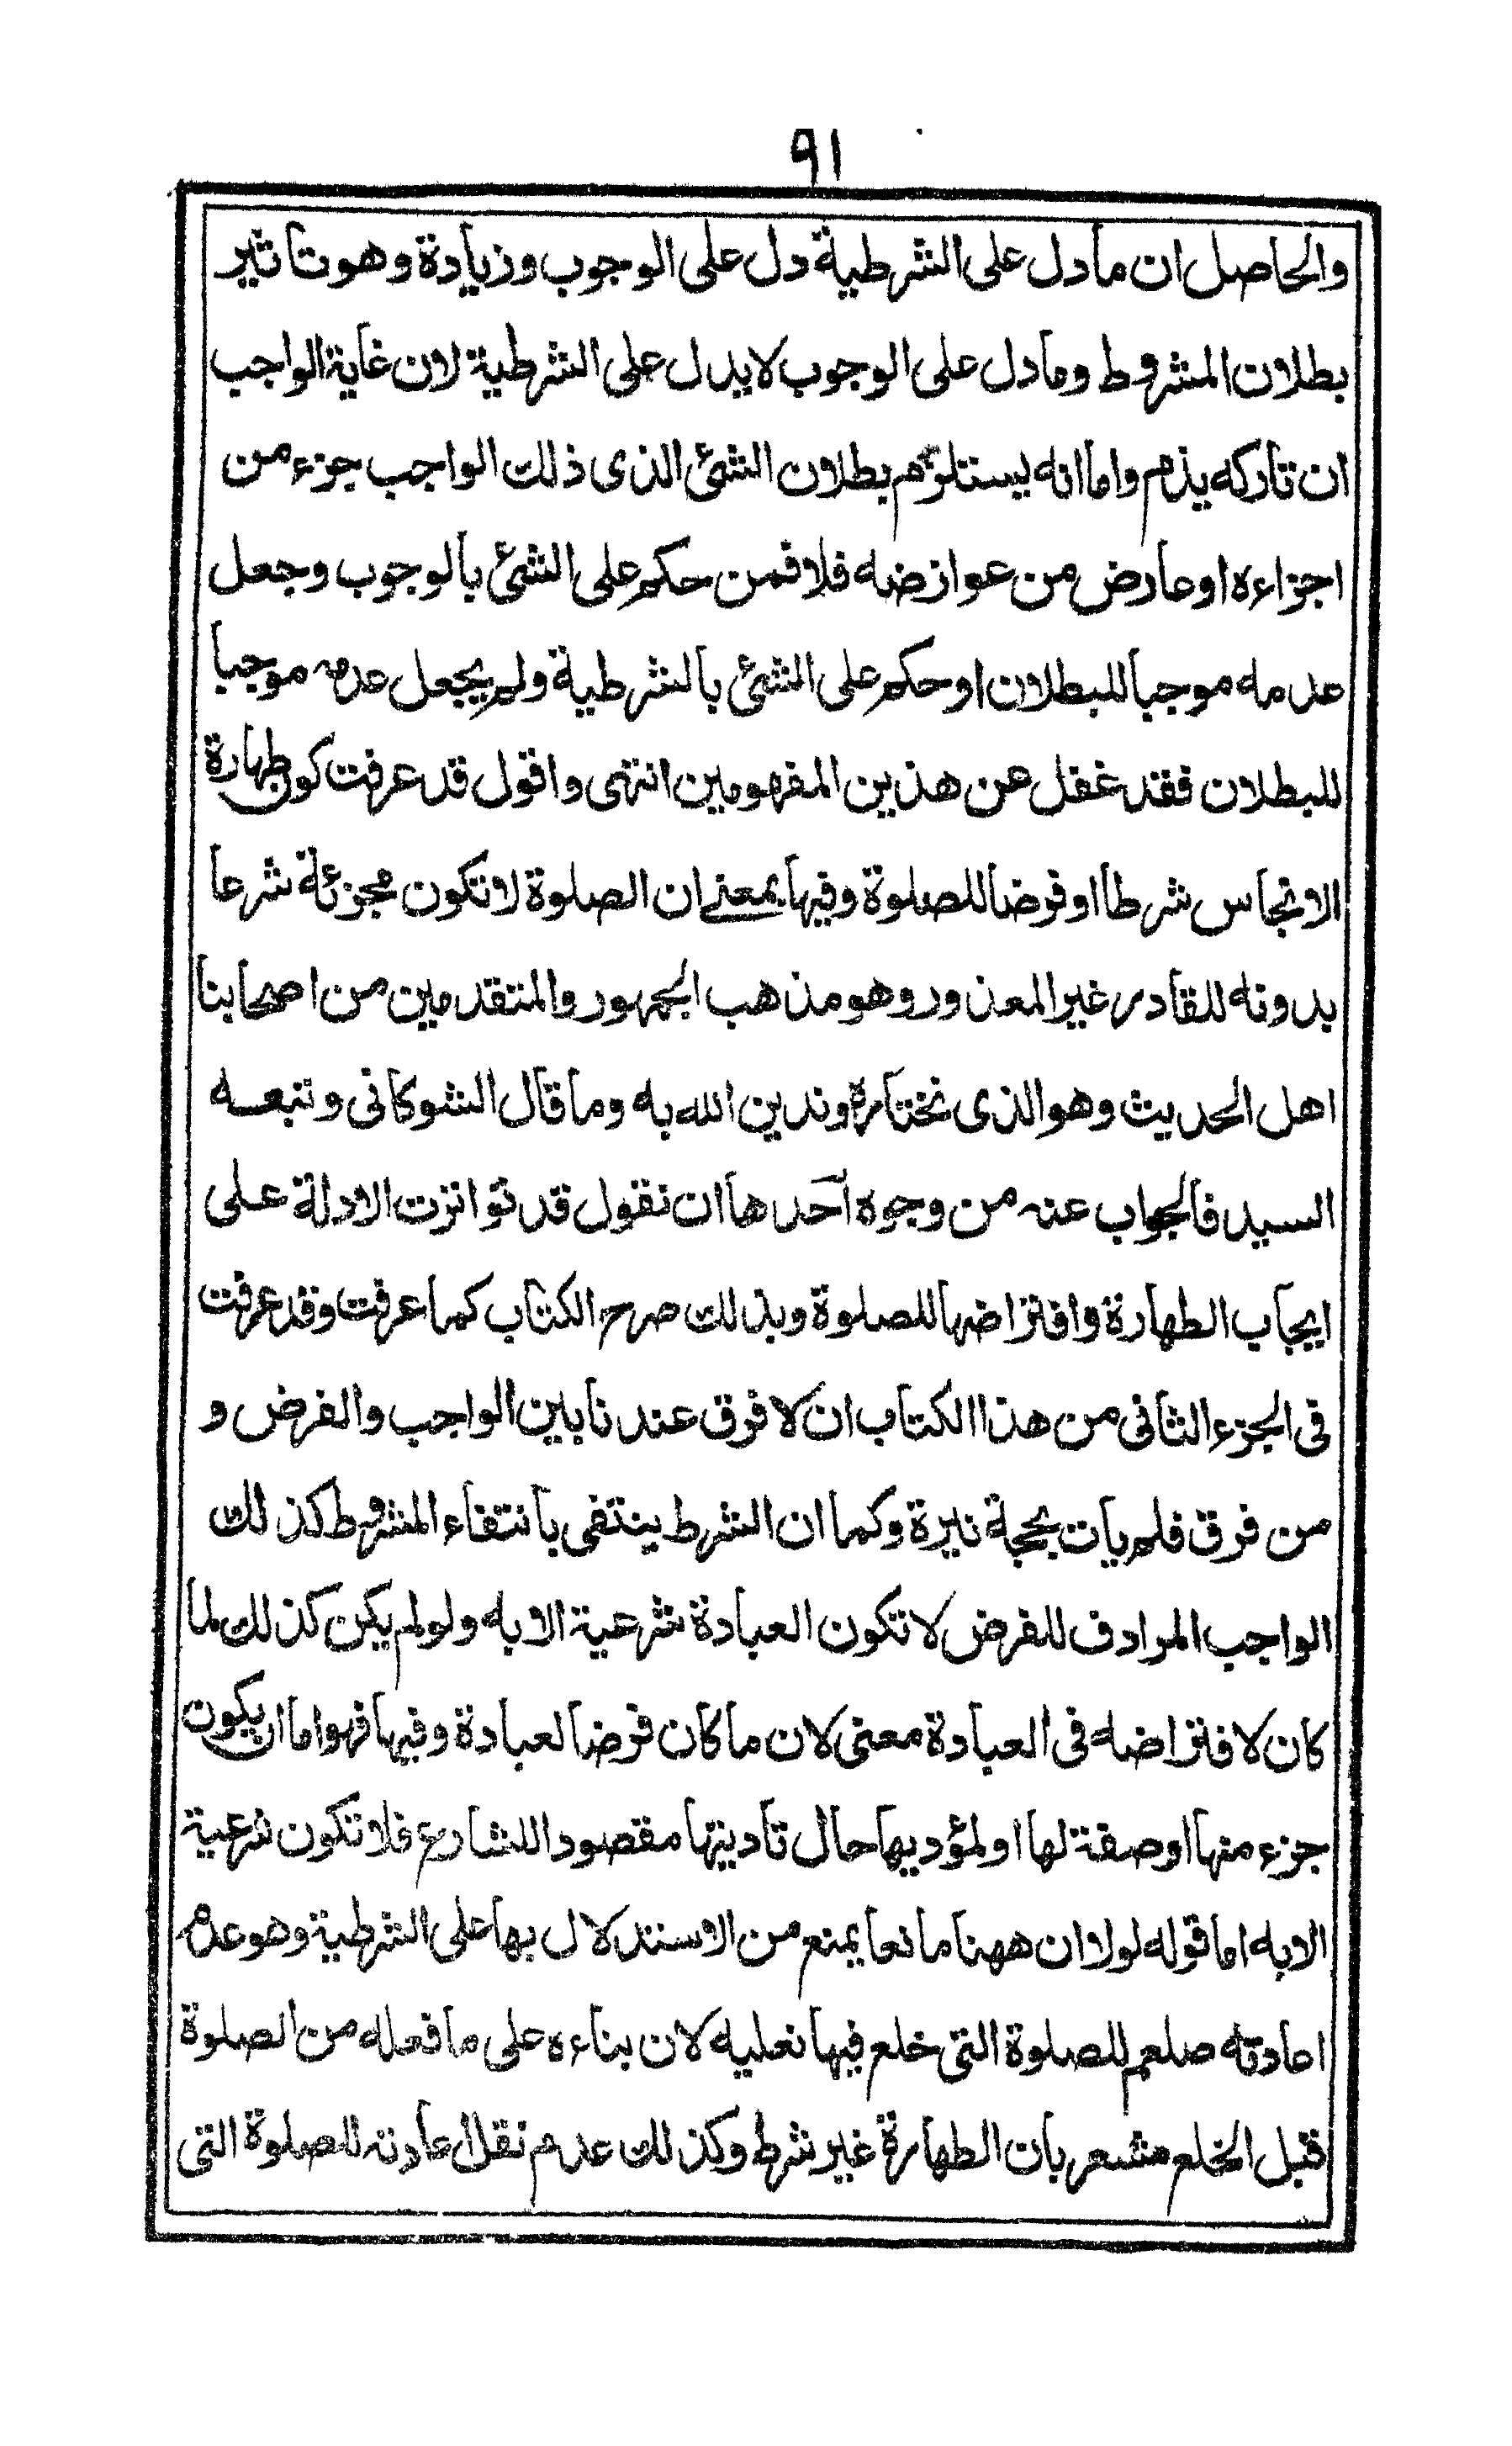 ٩١
والحاصل ان مادل على الشرطية دل على الوجوب وزيادة وهو تاثير
بطلان المشروط ومادل على الوجوب لا يدل على الشرطية لان غاية الواجب
ان تاركه يذم واما انه يستلزم بطلان الشئ الذى ذلك الواجب جزء من
اجزاءه او عارض من عوارضه فلا فمن حكم على الشئ بالوجوب وجعل
عدمه موجبا للبطلان او حكم على الشئ بالشرطية ولم يجعل عدمه موجبا
للبطلان فقد غفل عن هذين المفهومين انتهى واقول قد عرفت كون طهارة
الانجاس شرطا او فرضا للصلوة وفيها بمعنے ان الصلوة لا تكون مجزئة شرعا
بدونه للقادر غير المعذور وهو مذهب الجمهور والمتقدمين من اصحابنا
اهل الحديث وهو الذى نختاره وندين الله به وما قال الشوكانى وتبعه
السيد فالجواب عنه من وجوه احدها ان نقول قد تواترت الادلة على
ايجاب الطهارة وافتراضها للصلوة وبذلك صرح الكتاب كما عرفت وقد عرفت
فى الجزء الثانى من هذا الكتاب ان لا فرق عندنا بين الواجب والفرض و
من فرق فلم يات بحجة نيرة وكما ان الشرط ينتفى بانتفاء المشروط كذلك
الواجب المرادف للفرض لا تكون العبادة شرعية الا به ولو لم يكن كذلك لما
كان لافتراضه فى العبادة معنى لان ما كان فرضا لعبادة وفيها فهو اما ان يكون
جزء منها او صفة لها او لمؤديها حال تاديتها مقصودا للشارع فلا تكون شرعية
الا به اما قوله لولا ان ههنا مانعا يمنع من الاستدلال بها على الشرطية وهو عدم
اعادته صلعم للصلوة التى خلع فيها نعليه لان بناءه على ما فعله من الصلوة
قبل الخلع مشعر بان الطهارة غير شرط وكذلك عدم نقل اعادته للصلوة التى